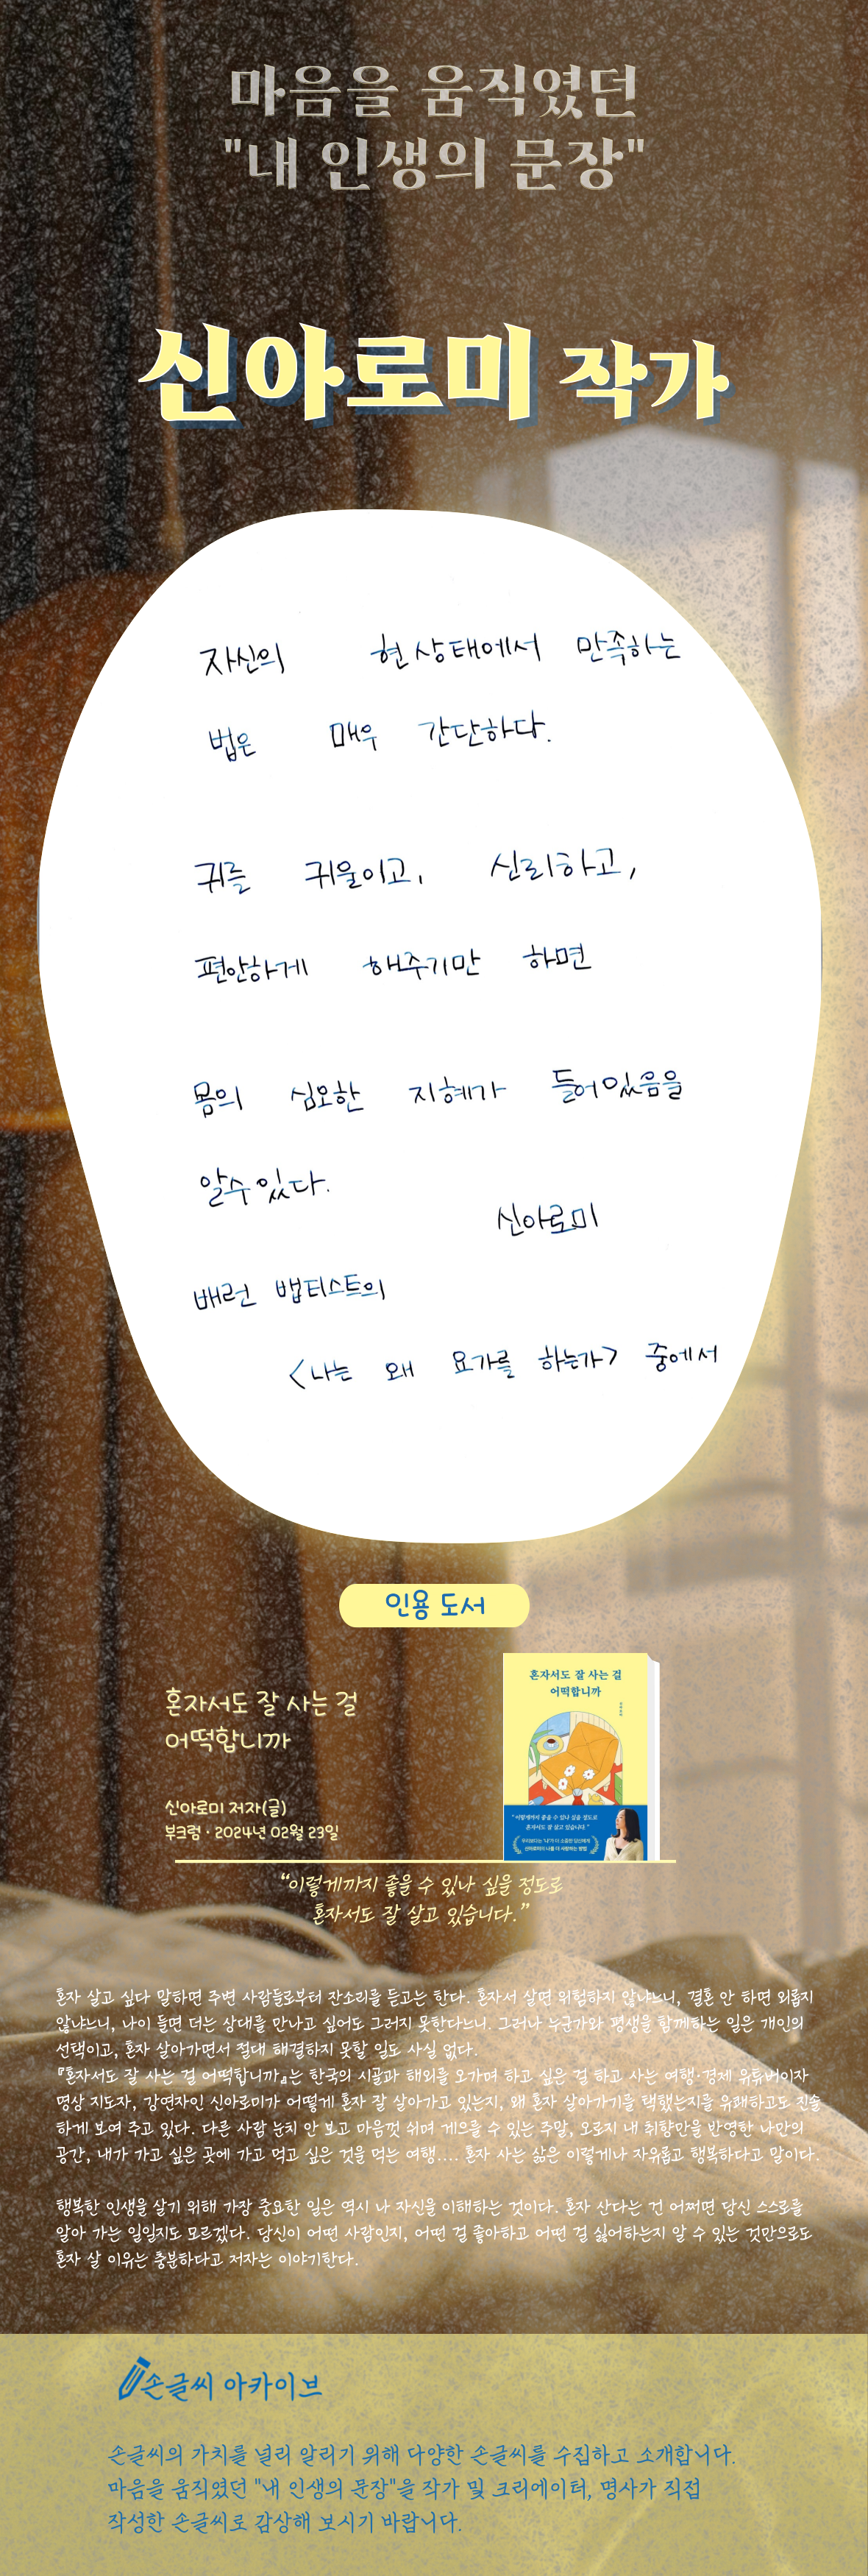 마음을 움직였던
"내 인생의 문장"
신아로미 작가
자신의 현 상태에서 만족하는
법은 매우 간단하다.
귀를 귀울이고, 신뢰하고,
편안하게 해주기만 하면
몸의 심오한 지혜가 들어있음을
알수 있다.
신아로미
배런 뱁티스트의
<나는 왜 요가를 하는가> 중에서
인용 도서
혼자서도 잘 사는 걸
어떡합니까
신아로미 저자(글)
부크럼 · 2024년 02월 23일
혼자서도 잘 사는 걸
어떡합니까
"이렇게까지 좋을 수 있나 싶을 정도로
혼자서도 잘 살고 있습니다."
“이렇게까지 좋을 수 있나 싶을 정도로
혼자서도 잘 살고 있습니다.”
혼자 살고 싶다 말하면 주변 사람들로부터 잔소리를 듣고는 한다. 혼자서 살면 위험하지 않냐느니, 결혼 안 하면 외롭지
않냐느니, 나이 들면 더는 상대를 만나고 싶어도 그러지 못한다느니. 그러나 누군가와 평생을 함께하는 일은 개인의
선택이고, 혼자 살아가면서 절대 해결하지 못할 일도 사실 없다.
『혼자서도 잘 사는 걸 어떡합니까』는 한국의 시골과 해외를 오가며 하고 싶은 걸 하고 사는 여행·경제 유튜버이자
명상 지도자, 강연자인 신아로미가 어떻게 혼자 잘 살아가고 있는지, 왜 혼자 살아가기를 택했는지를 유쾌하고도 진솔
하게 보여 주고 있다. 다른 사람 눈치 안 보고 마음껏 쉬며 게으를 수 있는 주말, 오로지 내 취향만을 반영한 나만의
공간, 내가 가고 싶은 곳에 가고 먹고 싶은 것을 먹는 여행…. 혼자 사는 삶은 이렇게나 자유롭고 행복하다고 말이다.
행복한 인생을 살기 위해 가장 중요한 일은 역시 나 자신을 이해하는 것이다. 혼자 산다는 건 어쩌면 당신 스스로를
알아 가는 일일지도 모르겠다. 당신이 어떤 사람인지, 어떤 걸 좋아하고 어떤 걸 싫어하는지 알 수 있는 것만으로도
혼자 살 이유는 충분하다고 저자는 이야기한다.
손글씨 아카이브
손글씨의 가치를 널리 알리기 위해 다양한 손글씨를 수집하고 소개합니다.
마음을 움직였던 "내 인생의 문장"을 작가 및 크리에이터, 명사가 직접
작성한 손글씨로 감상해 보시기 바랍니다.